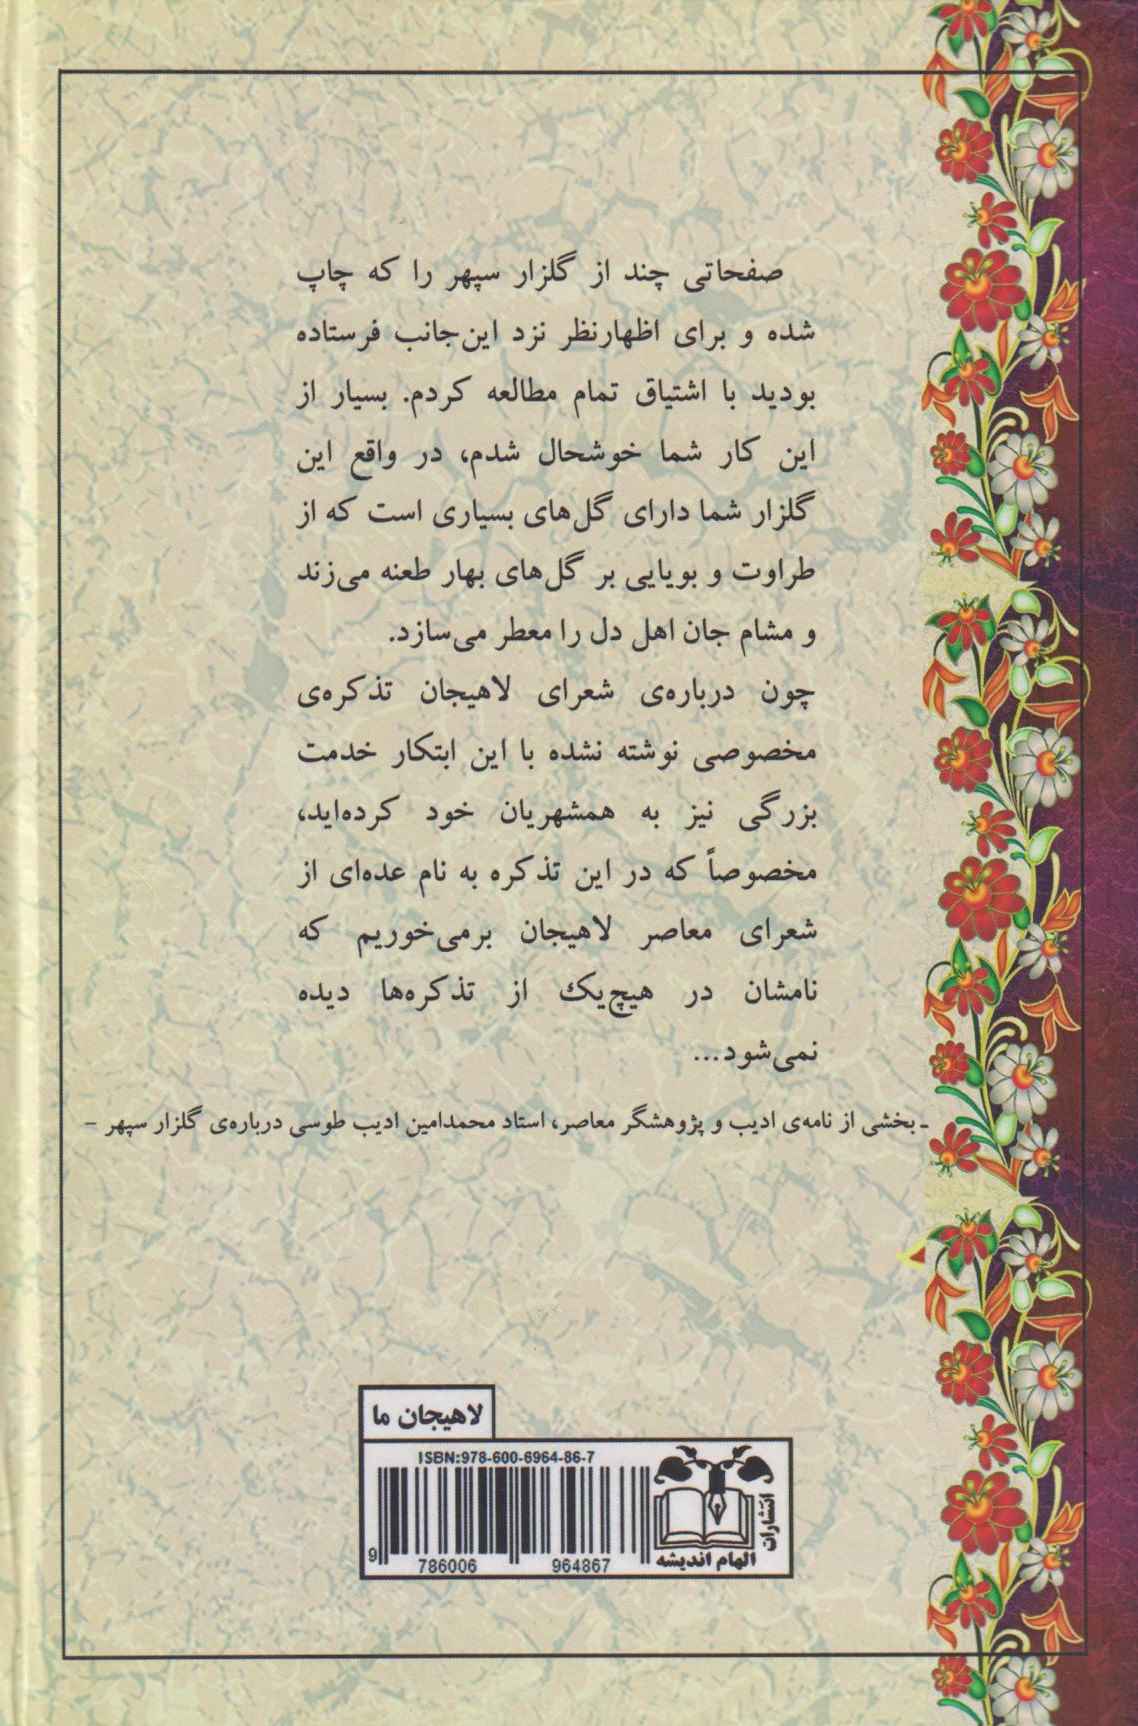 صفحاتی چند از گلزار سپهر را که چاپ
شده و برای اظهارنظر نزد این‌جانب فرستاده
بودید با اشتیاق تمام مطالعه کردم. بسیار از
این کار شما خوشحال شدم، در واقع این
گلزار شما دارای گل‌های بسیاری است که از
طراوت و بویایی بر گل‌های بهار طعنه می‌زند
و مشام جان اهل دل را معطر می‌سازد.
چون درباره‌ی شعرای لاهیجان تذکره‌ی
مخصوصی نوشته نشده با این ابتکار خدمت
بزرگی نیز به همشهریان خود کرده‌اید،
مخصوصاً که در این تذکره به نام عده‌ای از
شعرای معاصر لاهیجان برمی‌خوریم که
نامشان در هیچ‌یک از تذکره‌ها دیده
نمی‌شود...
- بخشی از نامه‌ی ادیب و پژوهشگر معاصر، استاد محمدامین ادیب طوسی درباره‌ی گلزار سپهر -
لاهیجان ما
ISBN:978-600-6964-86-7
9 786006 964867
انتشارات
الهام اندیشه